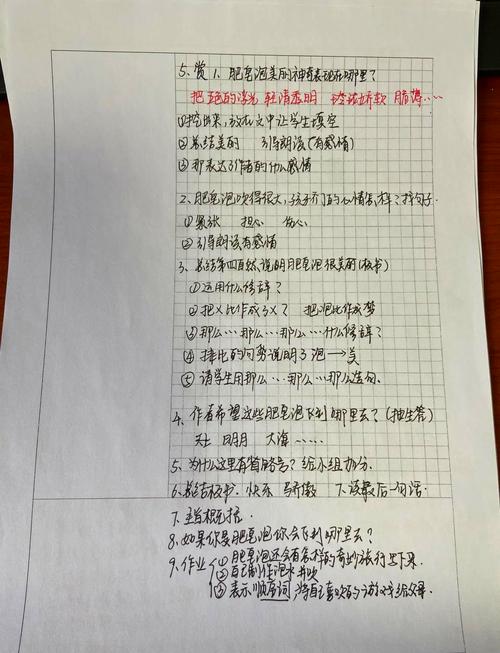 5、赏 1、肥皂泡美丽的神奇表现在哪里?
把五色的浮光 轻清透明 玲珑娇软 脂薄……
①挖出来,放在文中让学生填空
②总结美丽 引导朗读(有感情)
③那表达了作者的什么感情
2、肥皂泡吹得很大,孩子们的心情怎么样?择句子
①紧张 担心 伤心
②引导朗读有感情
3、总结第四自然段,说明肥皂泡很美丽(板书)
①运用什么修辞?
②把×比作成了×? 把泡比作成梦
③那么…那么…那么…什么修辞?
④排比的句势说明了泡→美
⑤请学生用那么…那么…那么造句。
4、作者希望这些肥皂泡飞到哪里去?(抽生答)
天上 明月 大海……
5、为什么这里有省略号?给小组加分.
6、总结板书. 快乐 骄傲 下、读最后一句话.
7、
8、如果你是肥皂泡你会飞到哪里去?
9、作业(① 肥皂泡还会有怎样的奇妙旅行写下来.
②自己制作泡水并吹
③表示顺序词,将自己喜欢的游戏给父母.